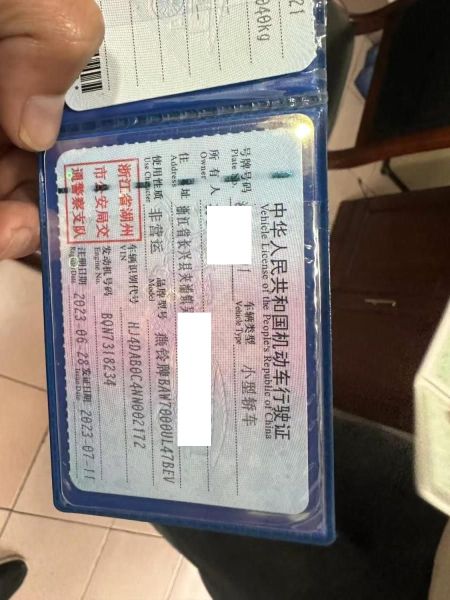 中华人民共和国机动车行驶证
Vehicle License of the People's Republic of China
号牌号码
Plate No.
车辆类型 小型轿车
Vehicle Type
所有人
Owner
住址 浙江省长兴县夹浦镇
Address
使用性质 非营运
Use Character
品牌型号 燕铃牌BAW7000UL47BEV
Model
浙江省湖州
市公安局交
通警察支队
车辆识别代号 HJ4DAB0C4NN002172
VIN
发动机号码 BQN7318234
Engine No.
注册日期 2023-06-28
Register Date
发证日期 2023-07-11
Issue Date
21
040kg